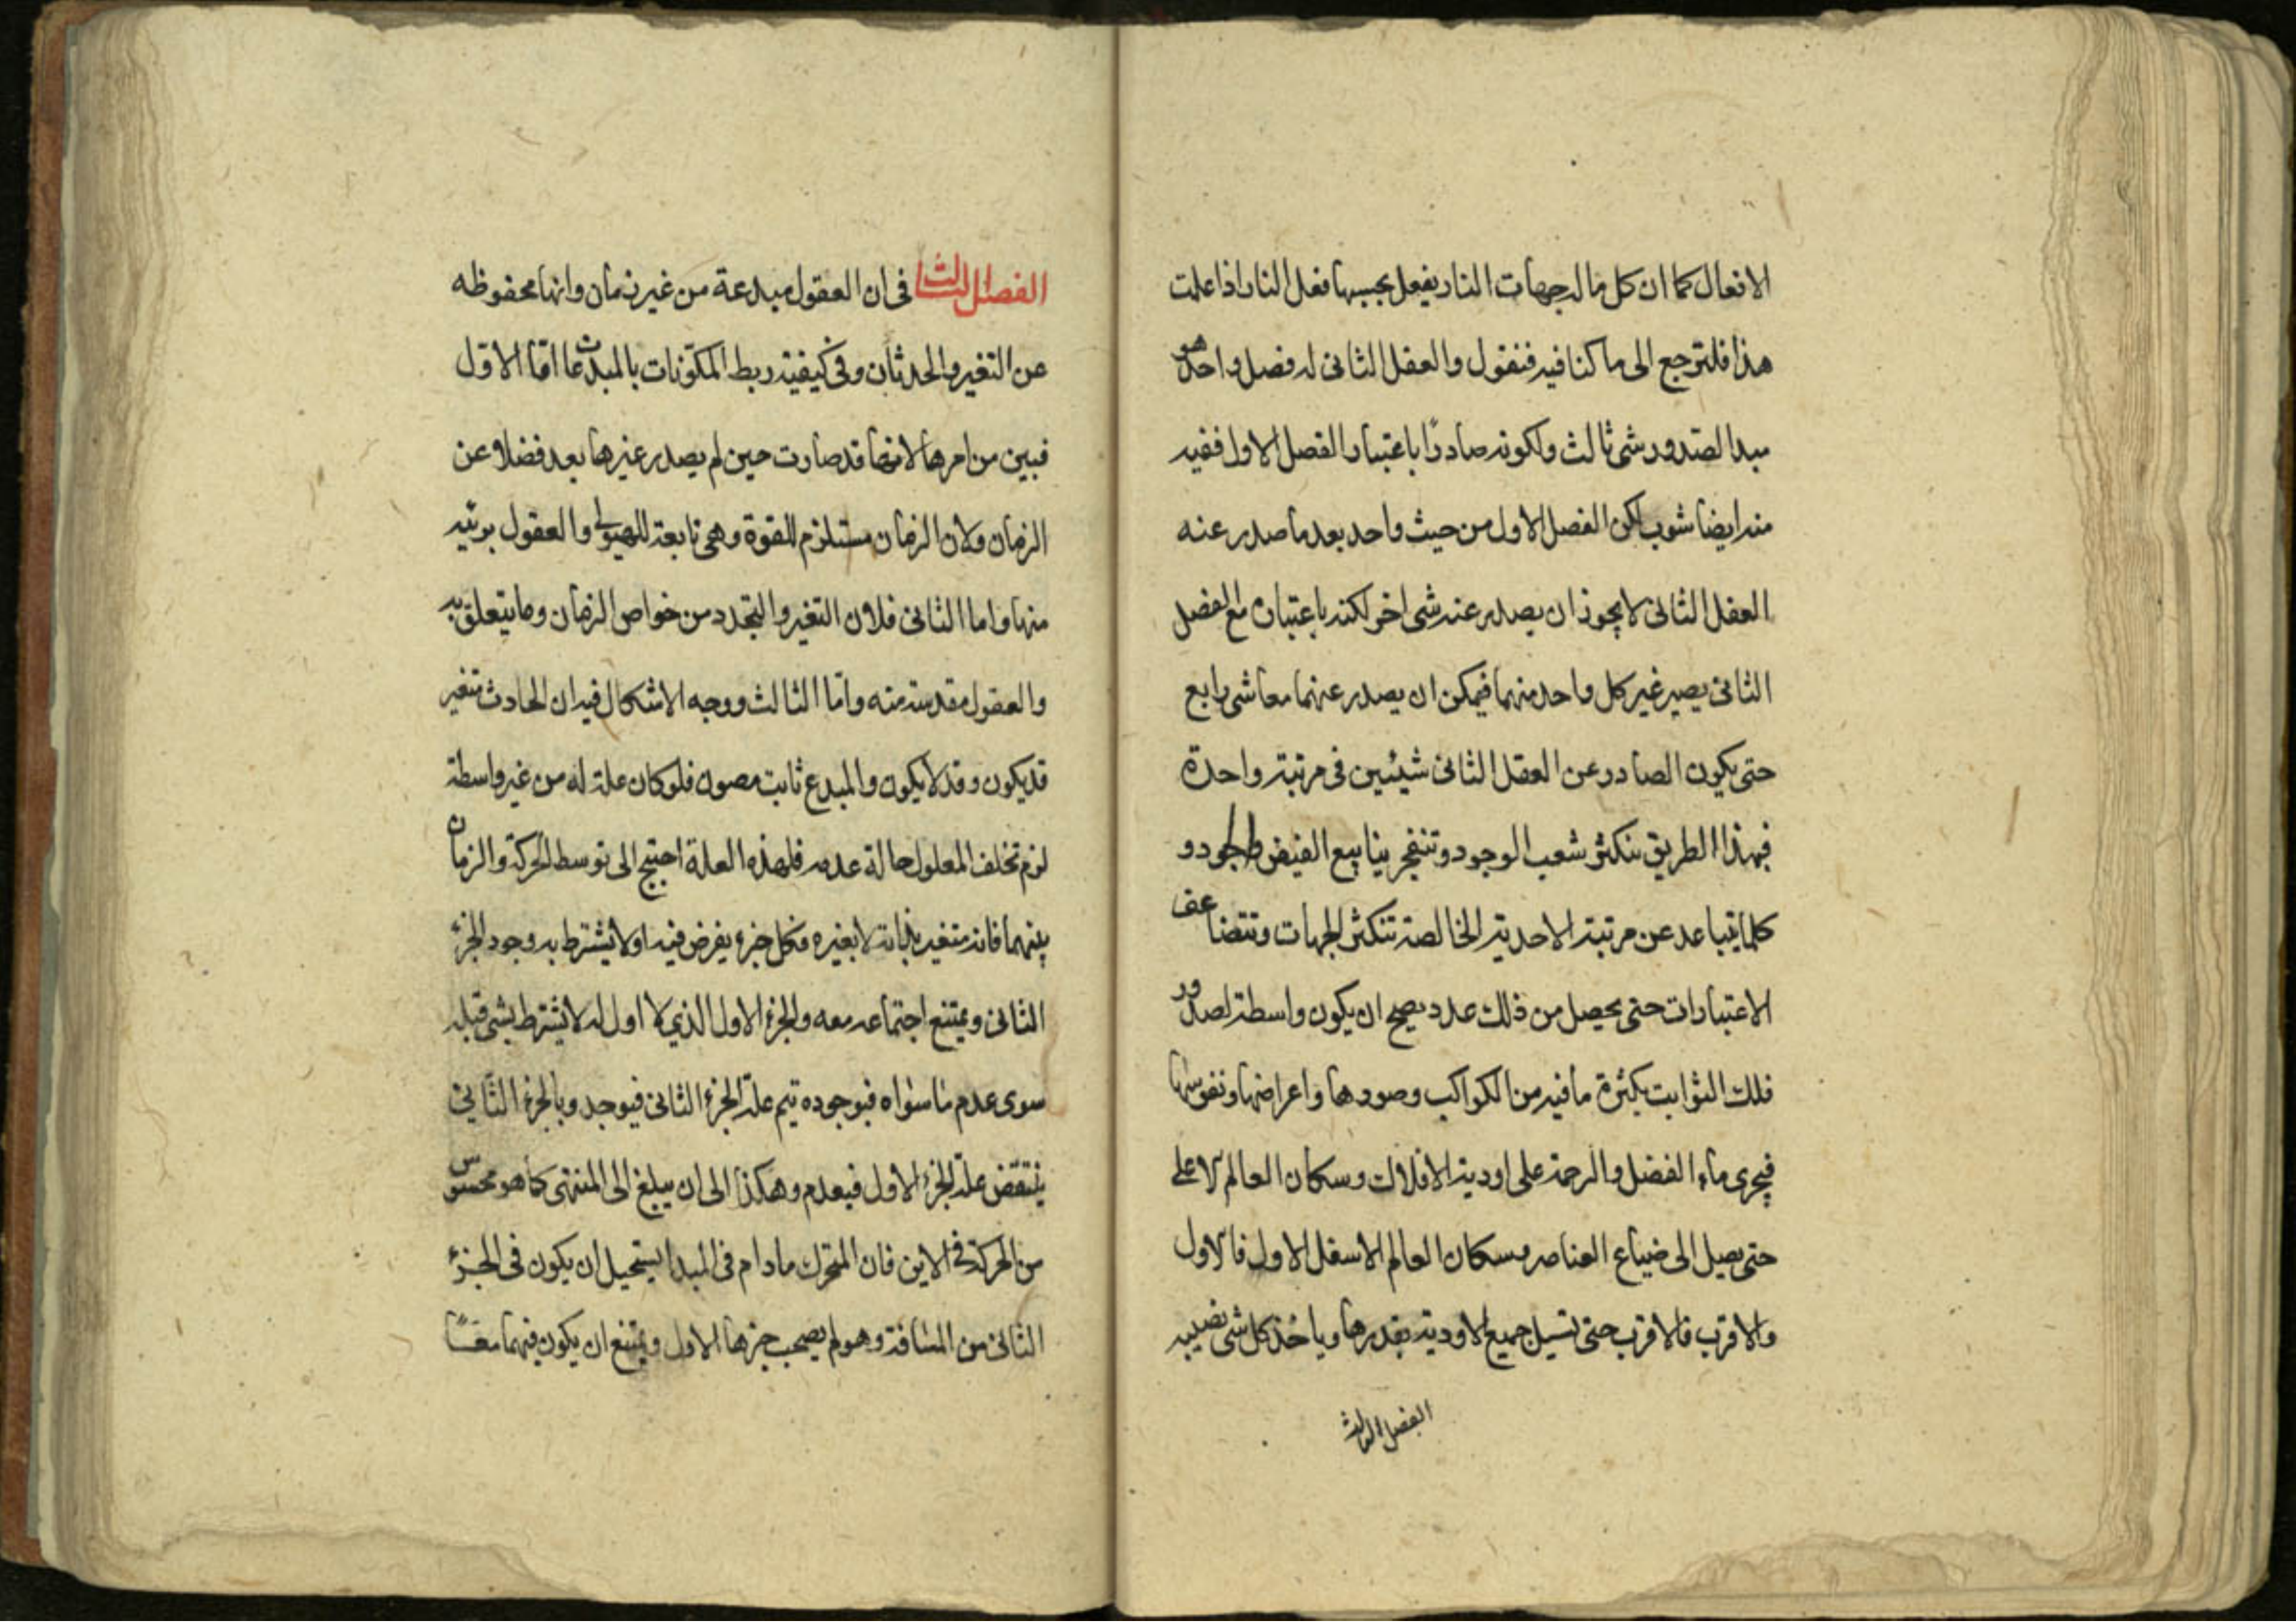 الافعال كما ان كل ماله جهات النار يفعل بحسبها فعل النار اذا علمت
هذا فلنرجع الى ما كنا فيه فنقول والعقل الثانى له فصل واحد هو
مبدا لصدور شى ثالث ولكونه صادرًا باعتبار الفصل الاول ففيه
منه ايضا شوب لكن الفصل الاول من حيث واحد بعد ما صدر عنه
العقل الثانى لا يجوز ان يصدر عنه شى اخر لكنه باعتباره مع الفصل
الثانى يصير غير كل واحد منهما فيمكن ان يصدر عنهما معا شى رابع
حتى يكون الصادر عن العقل الثانى شيئين فى مرتبة واحدة
فبهذا الطريق تتكثر شعب الوجود وتنفجر ينابيع الفيض والجود و
كلما يتباعد عن مرتبة الاحدية الخالصة تتكثر الجهات وتتضاعف
الاعتبارات حتى يحصل من ذلك عدد يصح ان يكون واسطة لصدور
فلك الثوابت بكثرة ما فيه من الكواكب وصورها واعراضها ونفوسها
فيجرى ماء الفضل والرحمة على اودية الافلاك وسكان العالم الاعلى
حتى يصيل الى ضياع العناصر وسكان العالم الاسفل الاول فالاول
والاقرب فالاقرب حتى تسيل جميع الاودية بقدرها وياخذ كل شى نصيبه
الفصل الثالث
الفصل الثالث فى ان العقول مبدعة من غير زمان وانها محفوظه
عن التغير والحدثان وفى كيفية ربط المكوّنات بالمبدعات امّا الاوّل
فبين من امرها لانها قد صارت حين لم يصدر غيرها بعد فضلا عن
الزمان ولان الزمان مستلزم للقوة وهى تابعة للهيولى والعقول بريّة
منها واما الثانى فلان التغير والتجدد من خواص الزمان وما يتعلق به
والعقول مقدسة منه وامّا الثالث ووجه الاشكال فيه ان الحادث متغير
قد يكون وقد لا يكون والمبدع ثابت مصون فلو كان علة له من غير واسطة
لزم تخلف المعلول حالة عدمه فلهذه العلة احتيج الى توسط الحركة والزمان
بينهما فانه متغير بذاته لا بغيره فكل جزء يفرض فيه اولا يشترط به وجود الجزء
الثانى ويمتنع اجتماعه معه والجزء الاول الذى لا اول له لا يشترط بشى قبله
سوى عدم ما سواه فبوجوده تيم علة الجزء الثانى فيوجد وبالجزء الثّانى
ينتقض علّة الجزء الاول فيعدم وهكذا الى ان يبلغ الى المنتهى كما هو محسوس
من الحركة فى الاين فان المتحرك مادام فى المبدا يستحيل ان يكون فى الجزء
الثانى من المسافة وهو لم يصحب جزءها الاول ويمتنع ان يكون فيهما معًا